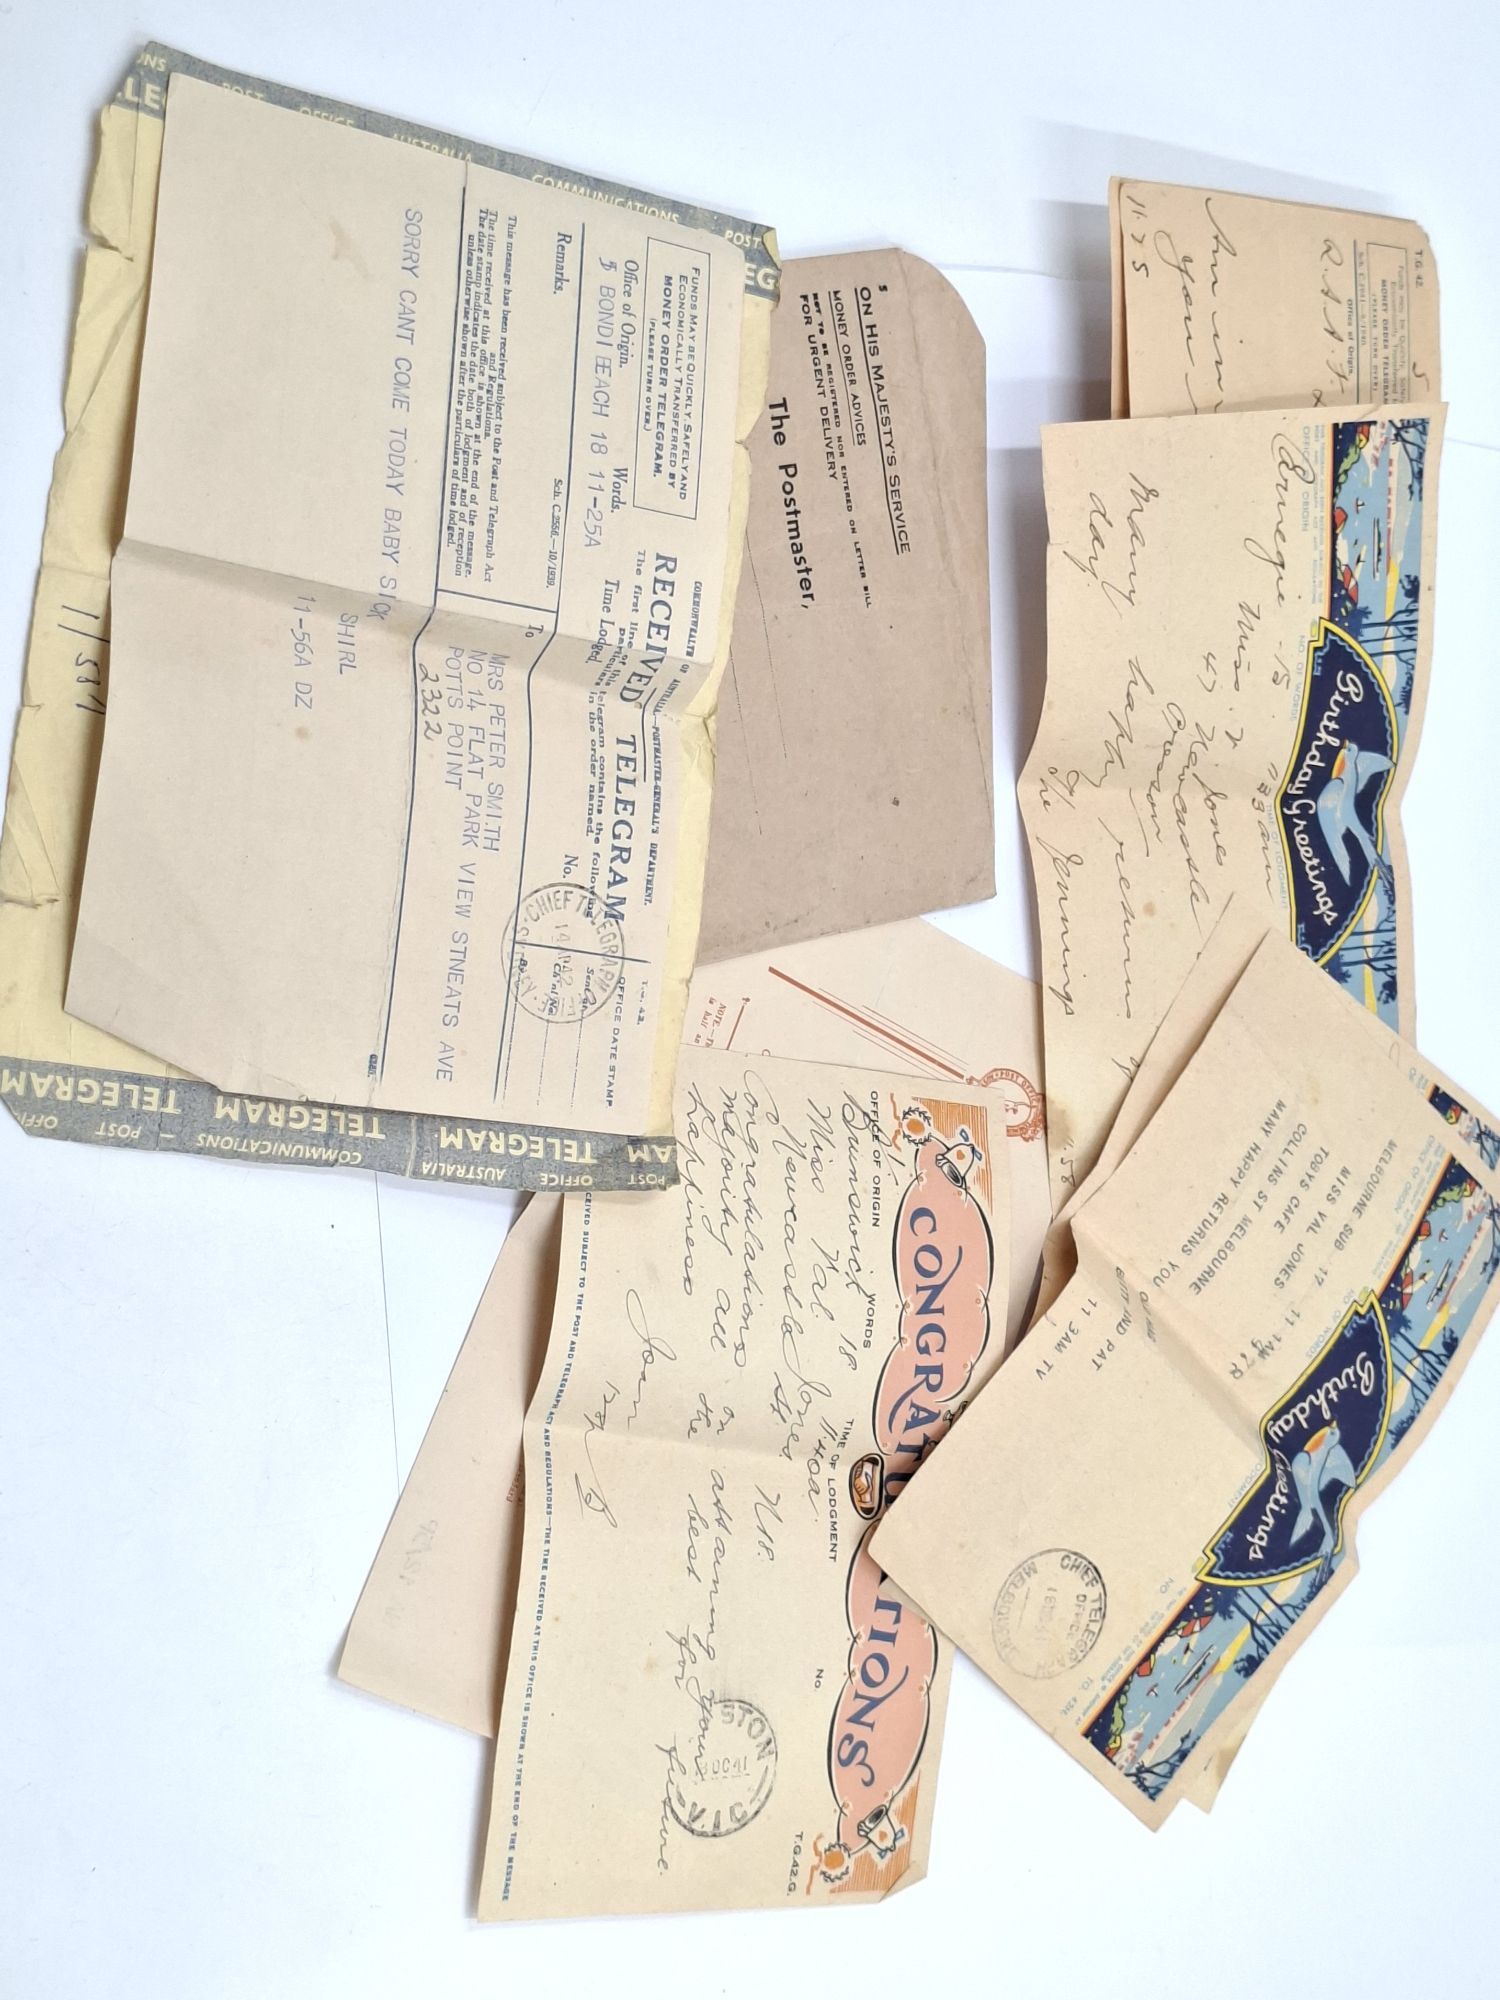 TELEGRAM
POST OFFICE AUSTRALIA COMMUNICATIONS POST
COMMONWEALTH OF AUSTRALIA.—POSTMASTER-GENERAL'S DEPARTMENT.
T.G. 42.
FUNDS MAY BE QUICKLY SAFELY AND
ECONOMICALLY TRANSFERRED BY
MONEY ORDER TELEGRAM.
(PLEASE TURN OVER.)
RECEIVED TELEGRAM
OFFICE DATE STAMP
The first line of this telegram contains the following
particulars in the order named.
Office of Origin. Words. Time Lodged. No.
BONDI BEACH 18 11-25A
Remarks.
Sch. C.2556.—10/1939.
CHIEF TELEGRAPH
SYDNEY
This message has been received subject to the Post and Telegraph Act
and Regulations.
The time received at this office is shown at the end of the message.
The date stamp indicates the date both of lodgment and of reception
unless otherwise shown after the particulars of time lodged.
To
MRS PETER SMITH
NO 14 FLAT PARK VIEW STNEATS AVE
POTTS POINT
2322
SORRY CANT COME TODAY BABY SICK
SHIRL
11-56A DZ
TELEGRAM TELEGRAM TELEGRAM
POST OFFICE AUSTRALIA COMMUNICATIONS POST
ON HIS MAJESTY'S SERVICE
MONEY ORDER ADVICES
NOT TO BE REGISTERED NOR ENTERED ON LETTER BILL
FOR URGENT DELIVERY
The Postmaster,
T.G. 42.
MONEY ORDER TELEGRAM
(PLEASE TURN OVER)
Office of Origin.
R.A.A.F.
5
11.25
Birthday Greetings
OFFICE OF ORIGIN
NO. OF WORDS
TIME OF LODGMENT
15
Miss V Jones
47 Newcastle
Many happy returns
day.
The Jennings
Birthday Greetings
OFFICE OF ORIGIN
NO. OF WORDS
MELBOURNE SUB 17 11-1AM
MISS VAL JONES
TOBYS CAFE
COLLINS ST MELBOURNE
MANY HAPPY RETURNS YOU
AND PAT
11 3AM TV
CHIEF TELEGRAPH
OFFICE
MELBOURNE
CONGRATULATIONS
OFFICE OF ORIGIN WORDS TIME OF LODGMENT No.
T.G.42.G.
Brunswick 18 11.40a.
Miss Val Jones
Newcastle St
Congratulations on attaining your
majority all the best for future
happiness
Joan
RECEIVED SUBJECT TO THE POST AND TELEGRAPH ACT AND REGULATIONS—THE TIME RECEIVED AT THIS OFFICE IS SHOWN AT THE END OF THE MESSAGE